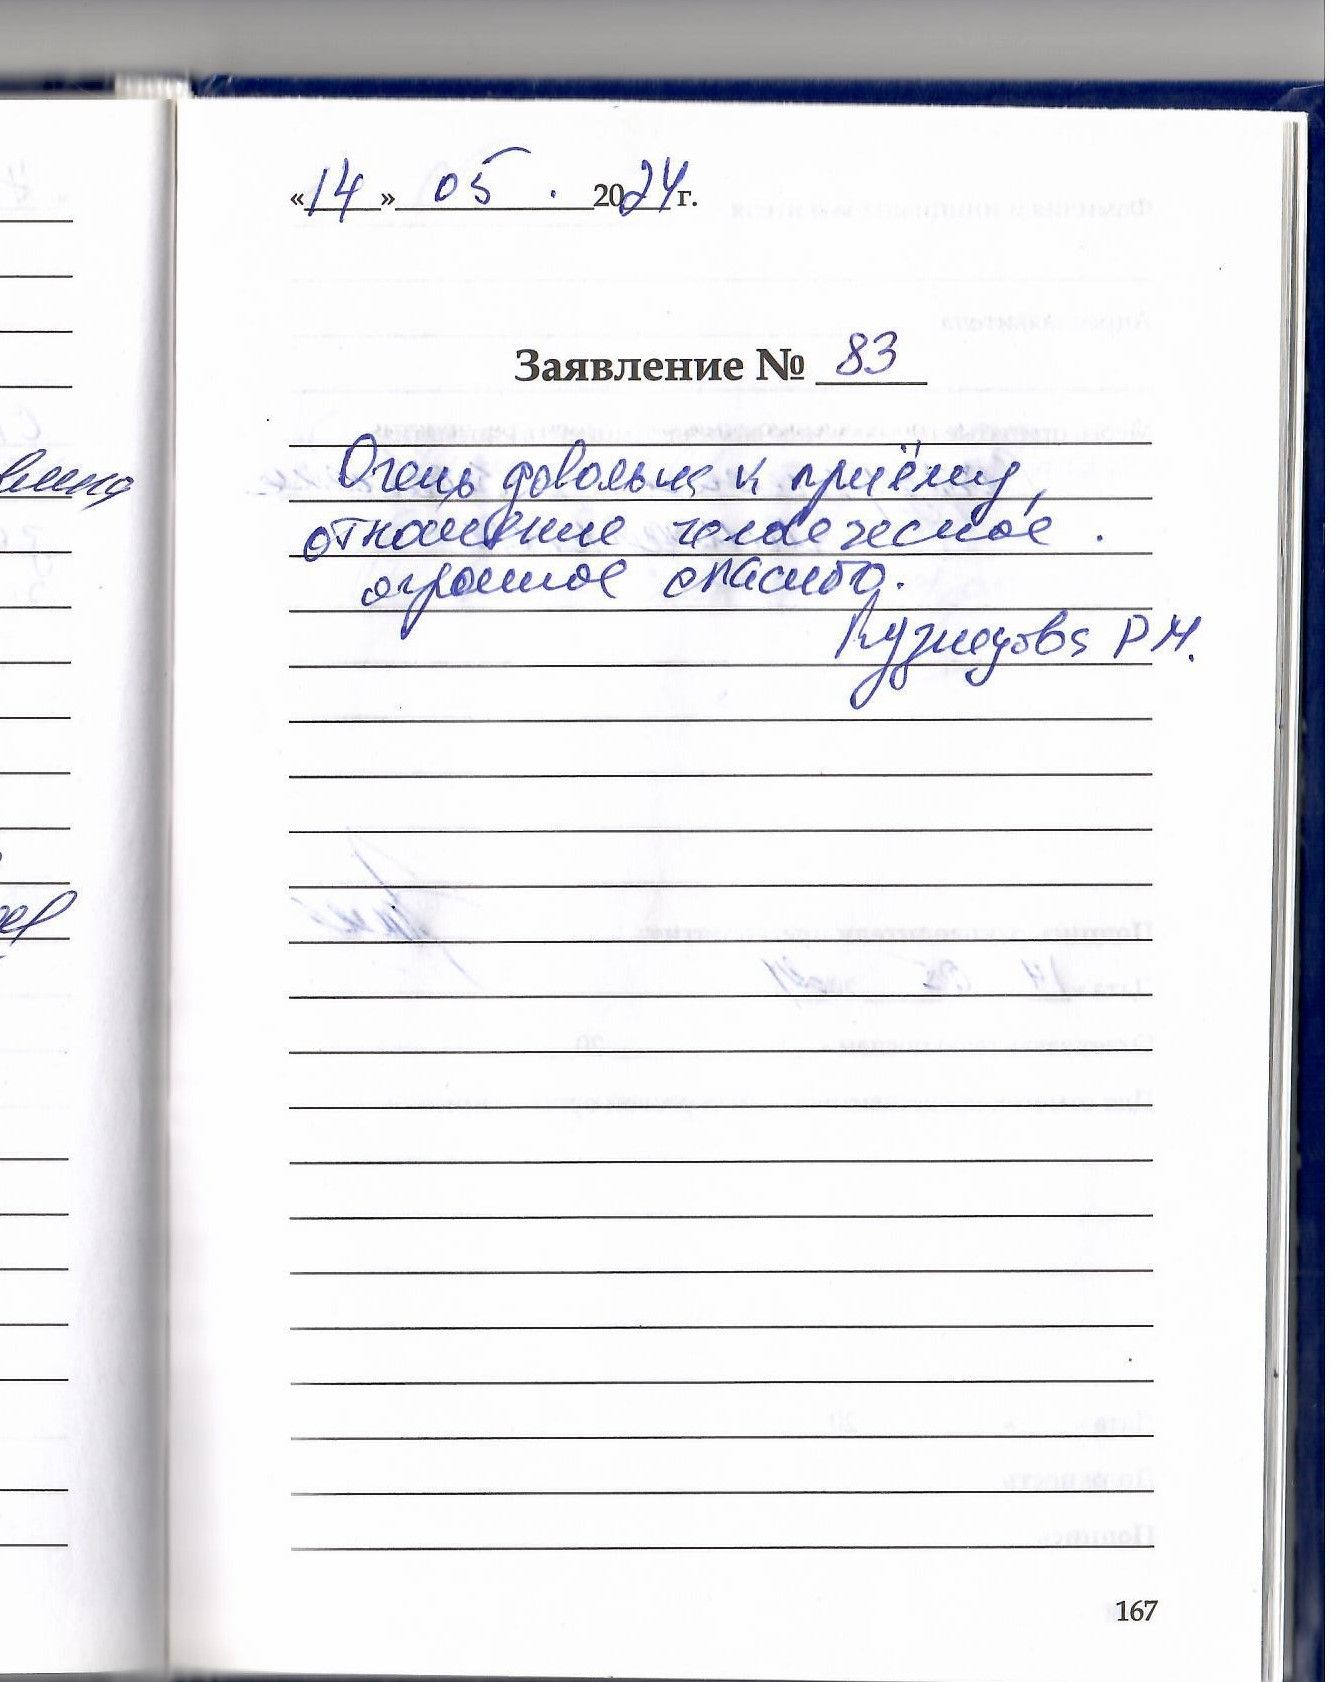 «14» 05. 2024г.
Заявление № 83
Очень довольна к приёму,
отношение человеческое.
огромное спасибо.
Кузнецова Р М.
167